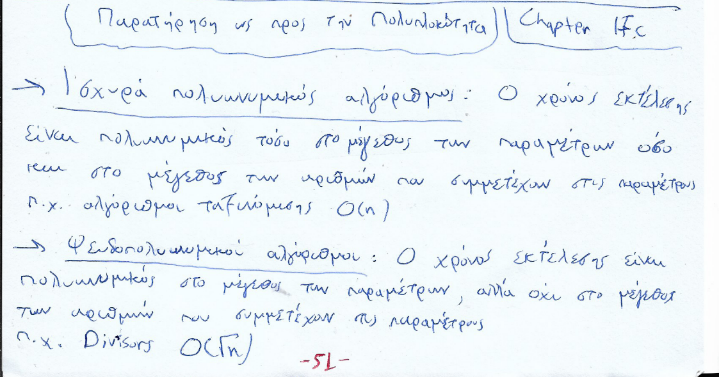 Παρατήρηση ως προς την Πολυπλοκότητα Chapter IF,c
→ Ισχυρά πολυωνυμικός αλγόριθμος: Ο χρόνος εκτέλεσης
είναι πολυωνυμικός τόσο στο μέγεθος των παραμέτρων όσο
και στο μέγεθος των αριθμών που συμμετέχουν στις παραμέτρους
π.χ. αλγόριθμοι ταξινόμισης O(n)
→ Ψευδοπολυωνυμικοί αλγόριθμοι: Ο χρόνος εκτέλεσης είναι
πολυωνυμικός στο μέγεθος των παραμέτρων, αλλά όχι στο μέγεθος
των αριθμών που συμμετέχουν στις παραμέτρους
π.χ. Divisors O(√n)
-51-